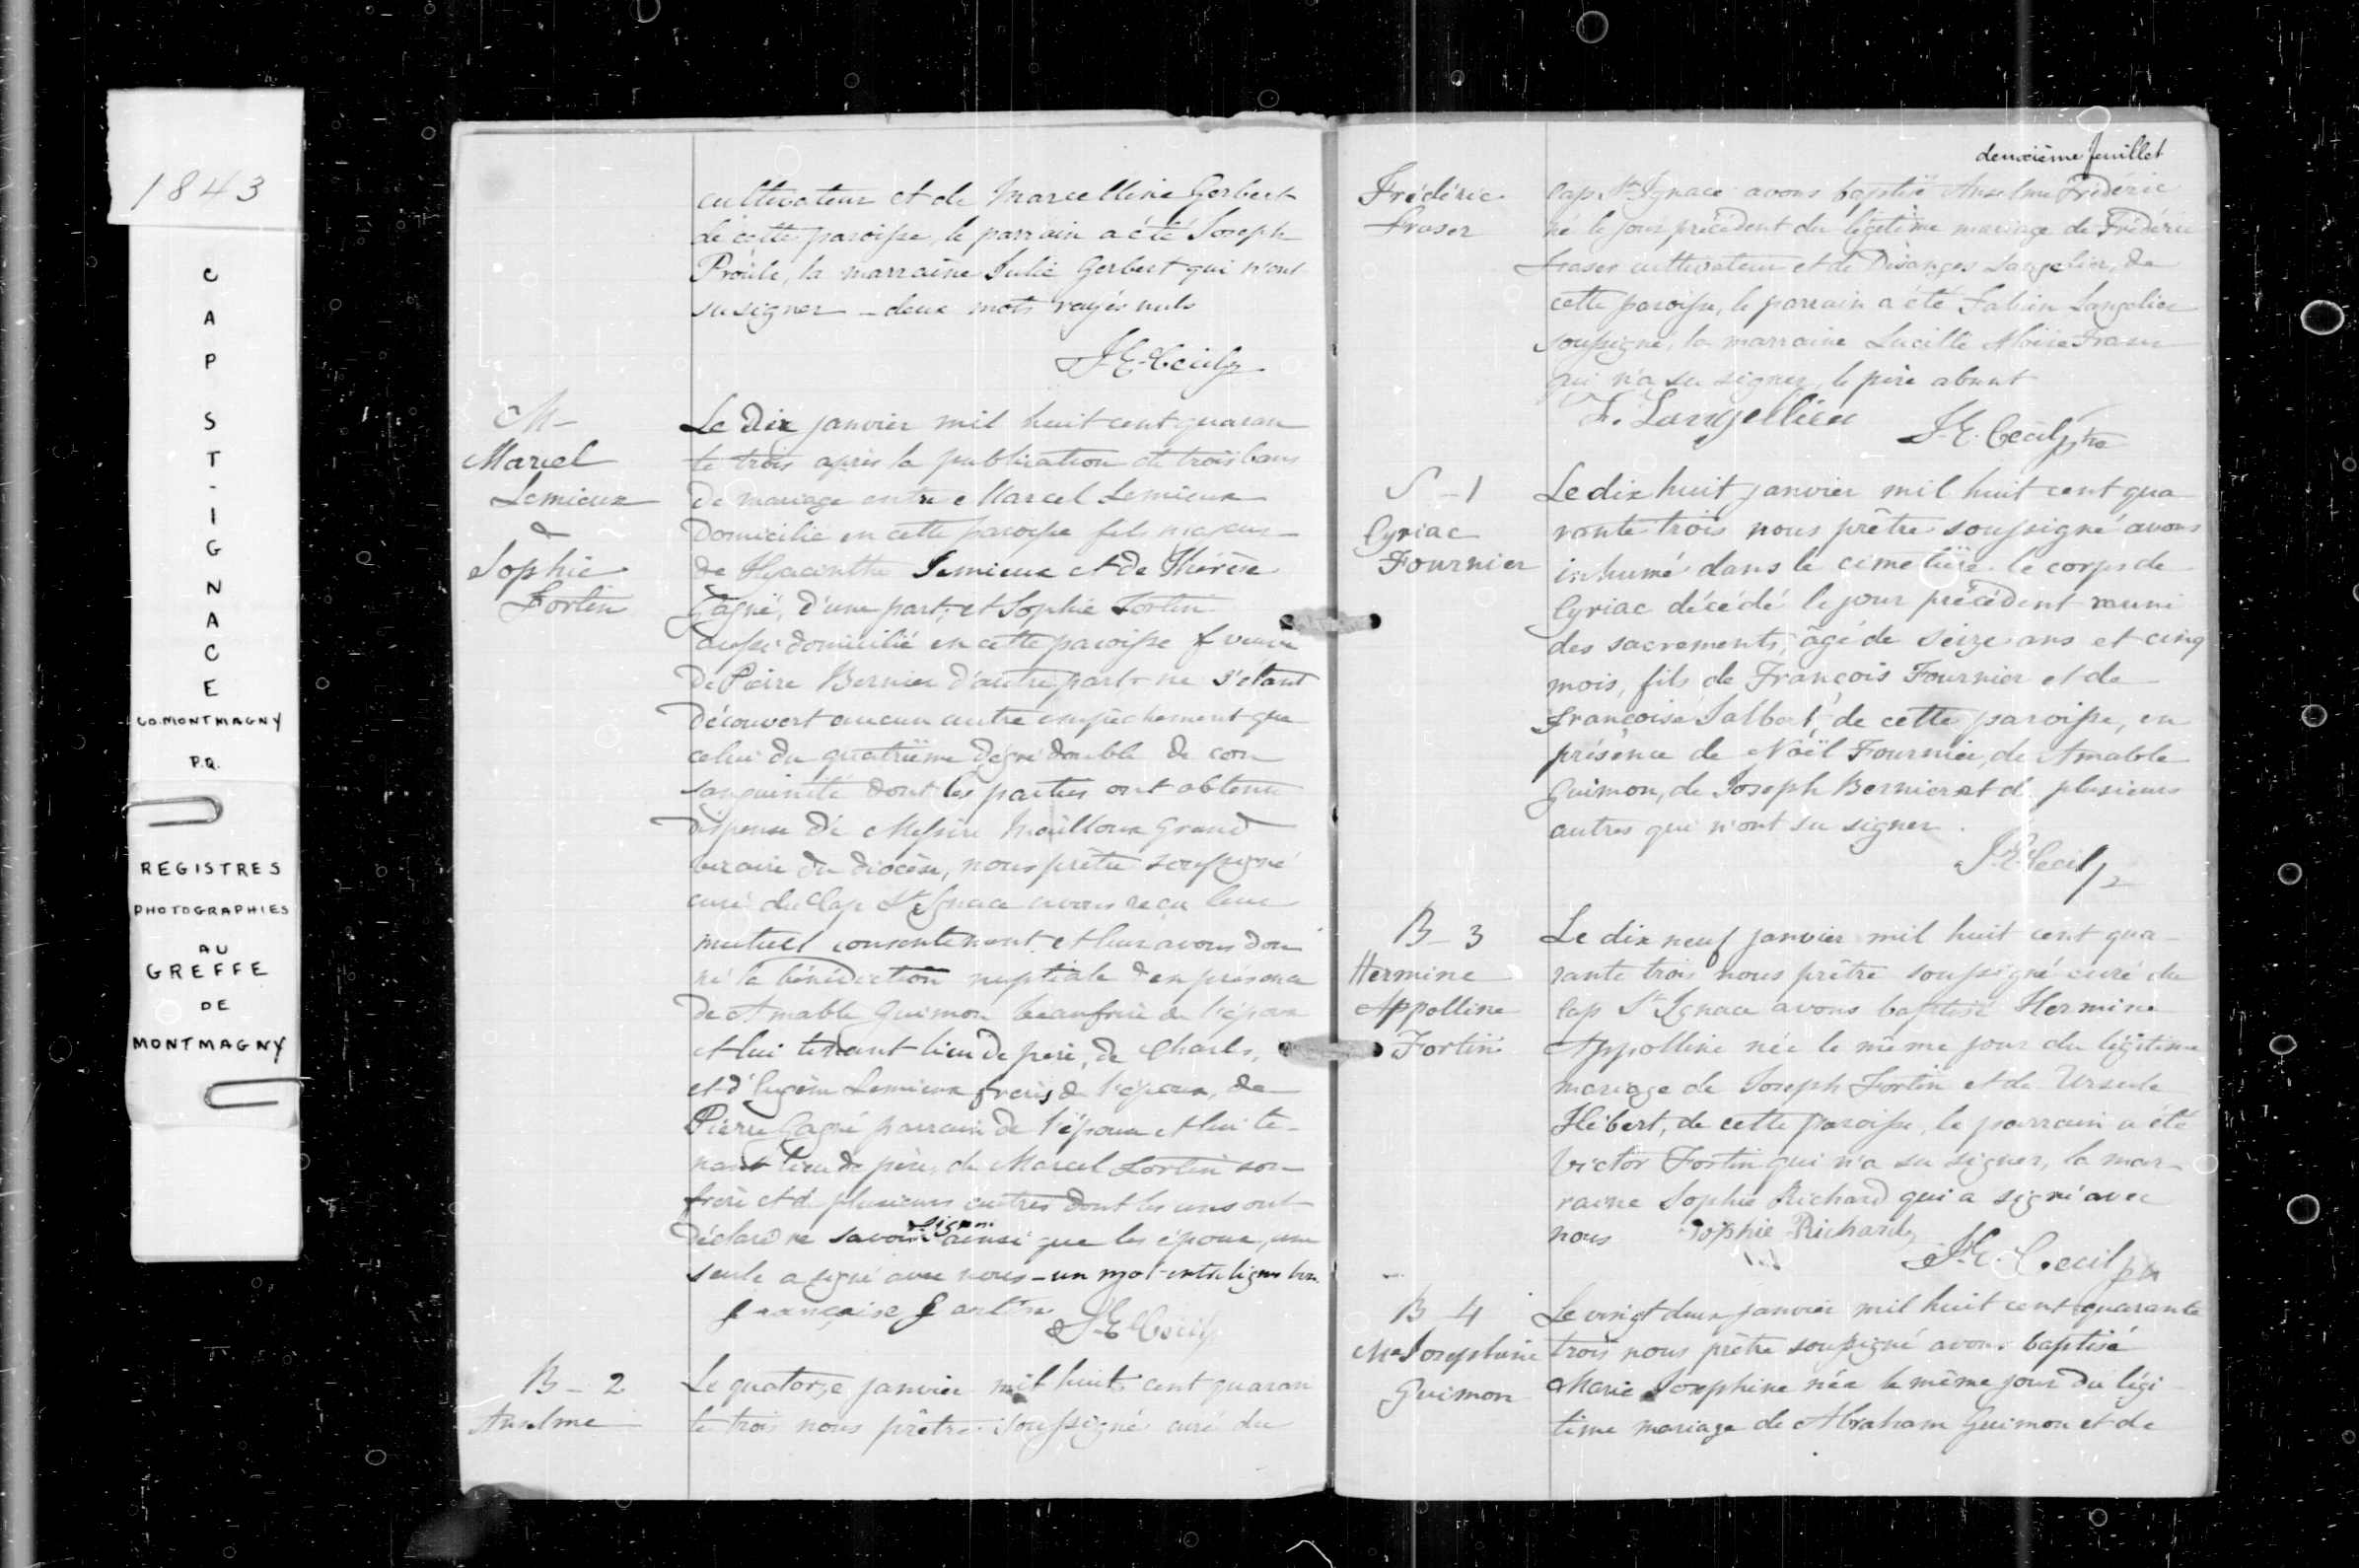 1843
CAP ST-IGNACE
CO. MONTMAGNY
P.Q.
REGISTRES
PHOTOGRAPHIES
AU
GREFFE
DE
MONTMAGNY
cultivateur et de Marcelline Gerbert
de cette paroisse, le parrain a été Joseph
Proulx, la marraine Julie Gerbert qui n'ont
su signer _ deux mots rayés nuls
J. E. Cecil ptr
M _
Marcel
Lemieux
&
Sophie
Fortin
Le dix janvier mil huit cent quaran
te trois après la publication de trois bans
de mariage entre Marcel Lemieux
domicilié en cette paroisse fils majeur
de Hyacinthe Lemieux et de Thérèse
Gagné, d'une part, et Sophie Fortin
aussi domicilié en cette paroisse veuve
de Pierre Bernier d'autre part _ ne s'étant
découvert aucun autre empêchement que
celui du quatrième dégré double de con
sanguinité dont les parties ont obtenu
dispense de Messire Mailloux Grand
vicaire du diocèse, nous prêtre soussigné
curé du Cap St Ignace avons reçu leur
mutuel consentement et leur avons don
né la bénédiction nuptiale & en présence
de Amable Guimon beaufrère de l'époux
et lui tenant lieu de père, de Charles,
et d'Eugène Lemieux frères de l'époux, de
Pierre Gagné parrain de l'épouse et lui te-
nant lieu de père, de Marcel Fortin son
frère et de plusieurs autres dont les uns ont
déclaré ne savoir signer ainsi que les époux, une
seule a signé avec nous _ un mot entreligne bon
françoise fortin J. E. Cecil ptr
B _ 2
Anselme
Le quatorze janvier mil huit cent quaran
te trois nous prêtre soussigné curé du
deuxième feuillet
Frédéric
Fraser
Cap St Ignace avons baptisé Anselme Frédéric
né le jour précédent du légitime mariage de Frédéric
Fraser cultivateur et de Désanges Langelier, de
cette paroisse, le parrain a été Fabien Langelier
soussigné, la marraine Lucille Fraser
qui n'a su signer, le père absent
F. Langellier J. E. Cecil ptre
S _ 1
Cyriac
Fournier
Le dix huit janvier mil huit cent qua
rante trois nous prêtre soussigné avons
inhumé dans le cimetière le corps de
Cyriac décédé le jour précédent muni
des sacrements, âgé de seize ans et cinq
mois, fils de François Fournier et de
Françoise Jalbert, de cette paroisse, en
présence de Noël Fournier, de Amable
Guimon, de Joseph Bernier et de plusieurs
autres qui n'ont su signer.
J. E. Cecil ptr
B _ 3
Hermine
Appolline
Fortin
Le dix neuf janvier mil huit cent qua-
rante trois nous prêtre soussigné curé du
Cap St Ignace avons baptisé Hermine
Appolline née le même jour du légitime
mariage de Joseph Fortin et de Ursule
Hébert, de cette paroisse, le parrain a été
Victor Fortin qui n'a su signer, la mar-
raine Sophie Richard qui a signé avec
nous Sophie Richard
J. E. Cecil ptr
B _ 4
Me Josephine
Guimon
Le vingt deux janvier mil huit cent quarante
trois nous prêtre soussigné avons baptisé
Marie Josephine née le même jour du légi
time mariage de Abraham Guimon et de